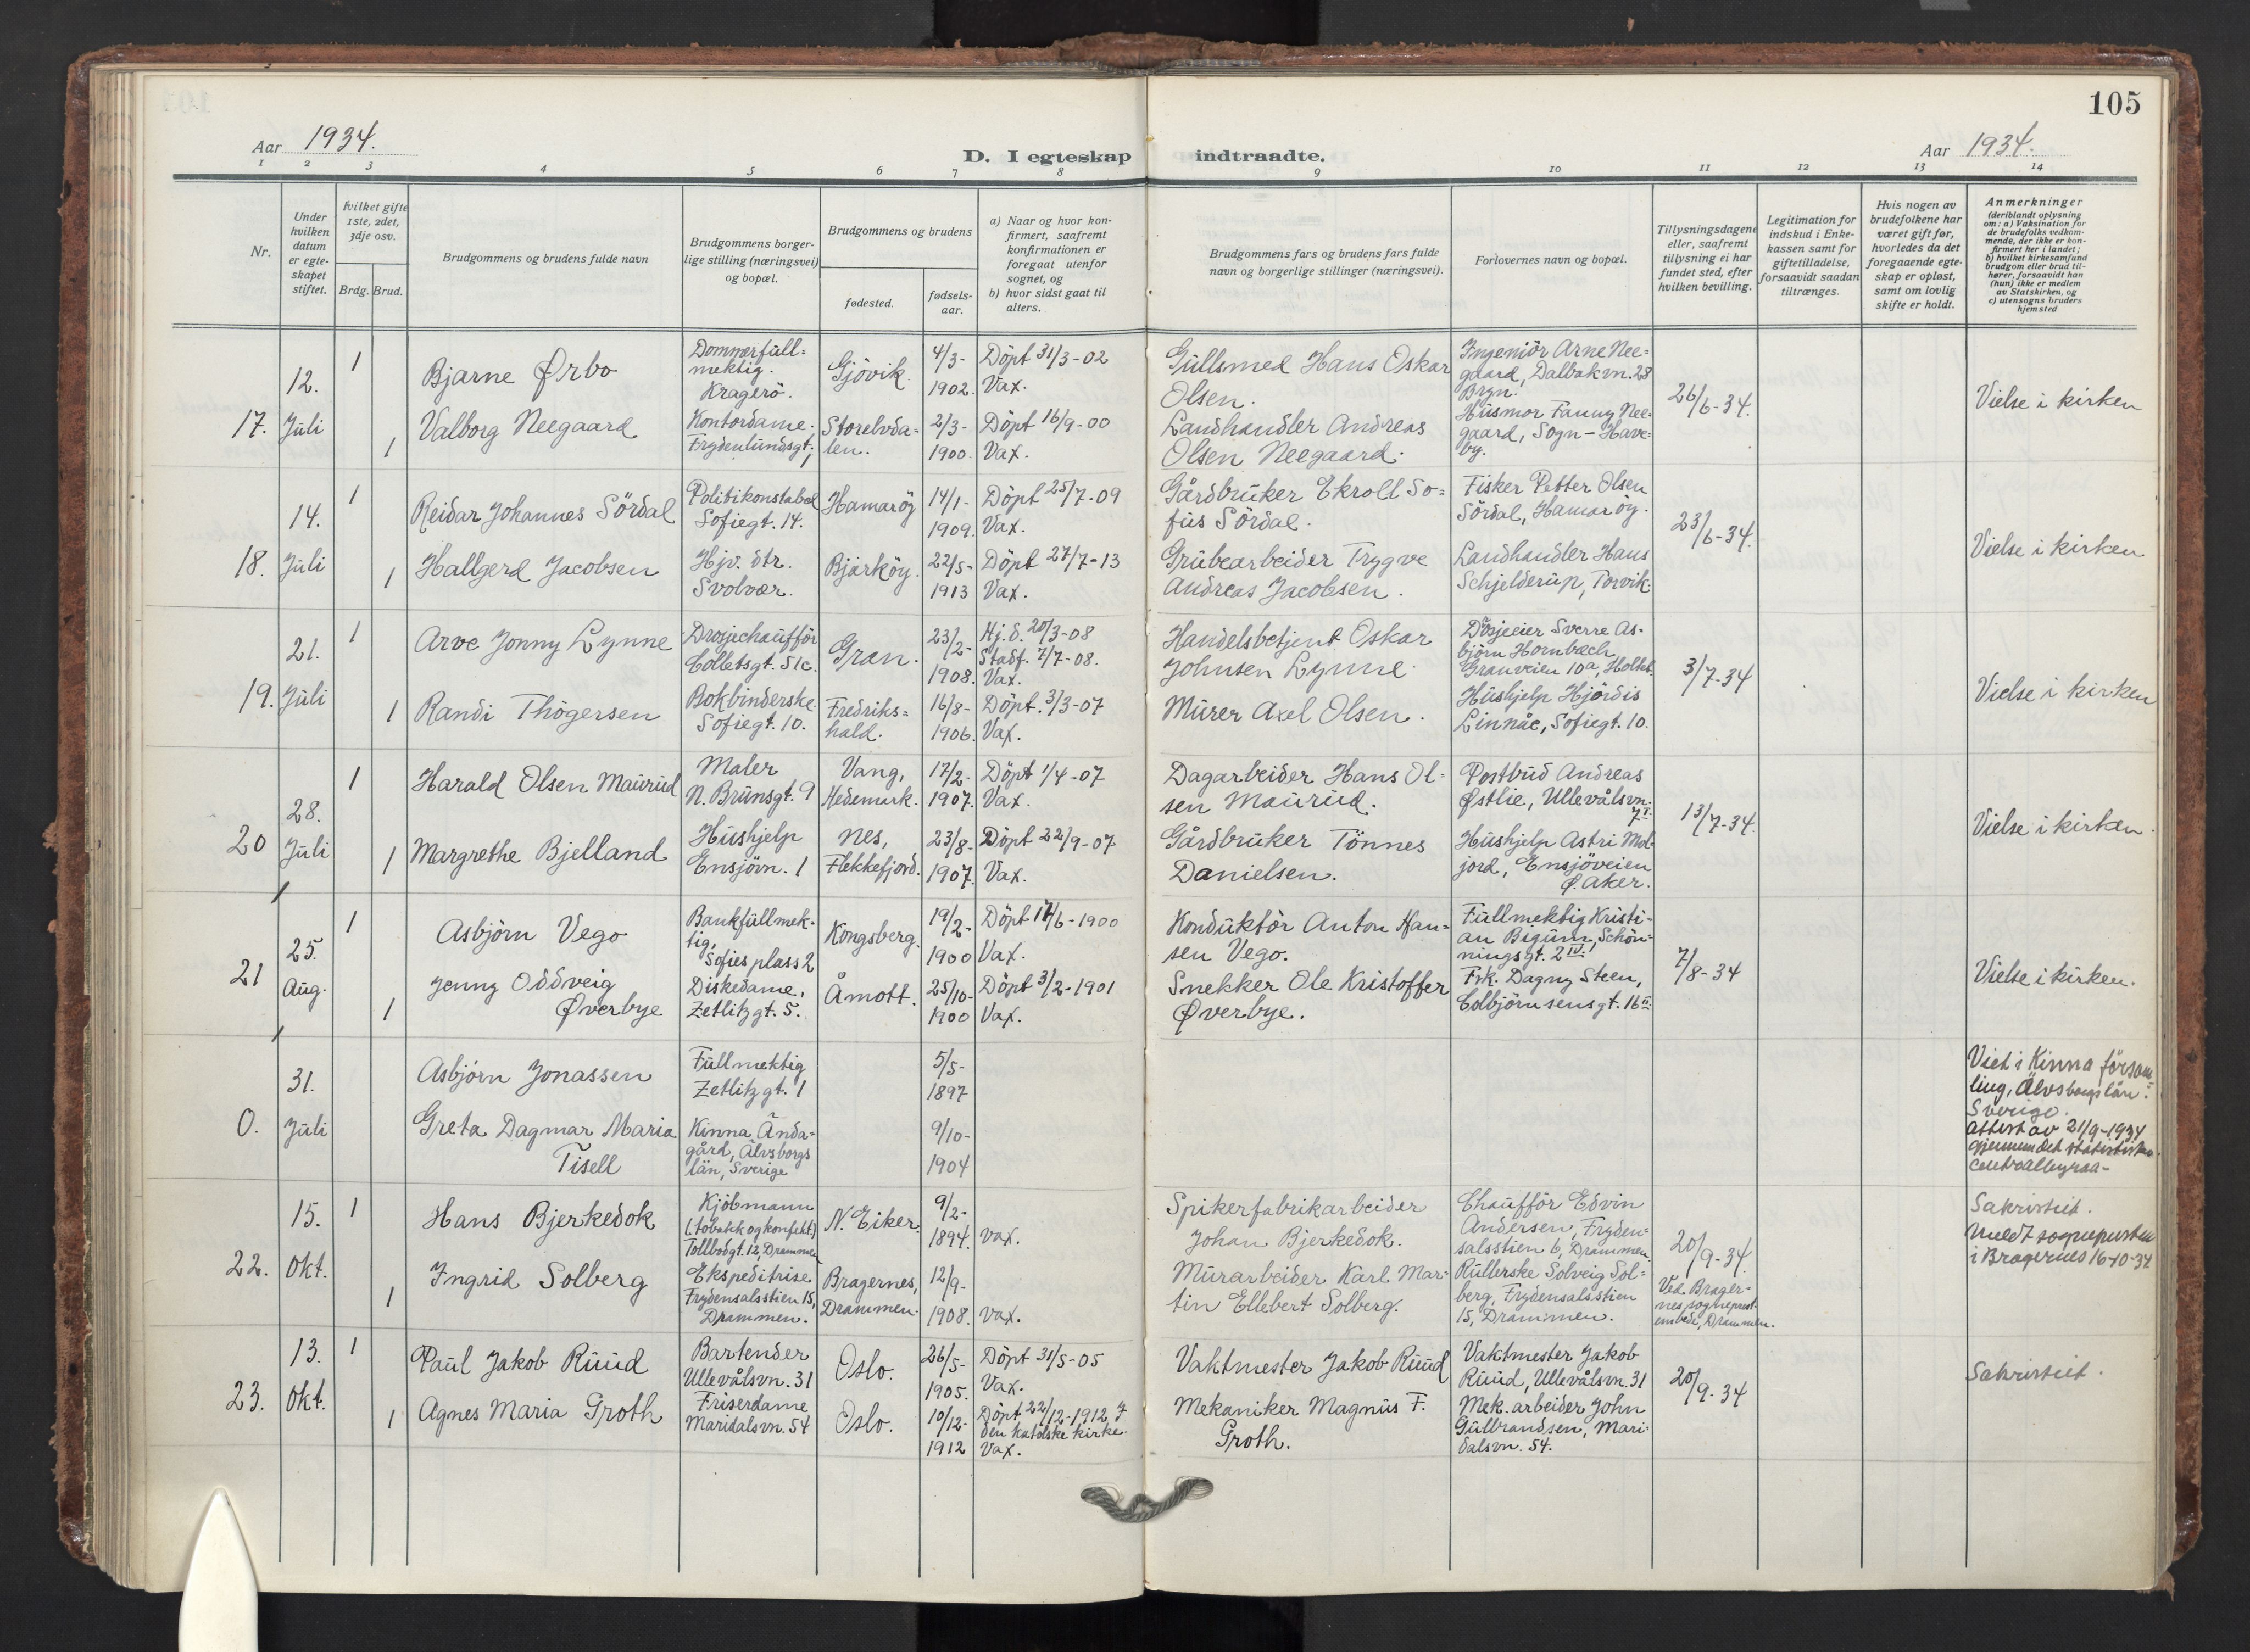 105
Aar 1934.
D. I egteskap indtraadte.
Aar 1934.
1 2 3 4 5 6 7 8 9 10 11 12 13 14
Nr.
Under hvilken datum er egteskapet stiftet.
hvilket gifte 1ste, 2det, 3dje osv.
Brdg. Brud.
Brudgommens og brudens fulde navn
Brudgommens borgerlige stilling (næringsvei) og bopæl.
Brudgommens og brudens
fødested.
fødselsaar.
a) Naar og hvor konfirmert, saafremt konfirmationen er foregaat utenfor sognet, og
b) hvor sidst gaat til alters.
Brudgommens fars og brudens fars fulde navn og borgerlige stillinger (næringsvei).
Forlovernes navn og bopæl.
Tillysningsdagene eller, saafremt tillysning ei har fundet sted, efter hvilken bevilling.
Legitimation for indskud i Enkekassen samt for giftetilladelse, forsaavidt saadan tiltrænges.
Hvis nogen av brudefolkene har været gift før, hvorledes da det foregaaende egteskap er opløst, samt om lovlig skifte er holdt.
Anmerkninger
(deriblandt oplysning om: a) Vaksination for de brudefolks vedkommende, der ikke er konfirmert her i landet; b) hvilket kirkesamfund brudgom eller brud tilhører, forsaavidt han (hun) ikke er medlem av Statskirken, og c) utensogns bruders hjemsted
17. 12. Juli
1 Bjarne Ørbo
Dommerfull-
mektig.
Kragerö.
Gjövik.
4/3-
1902.
Döpt 31/3-02
Vax.
Gullsmed Hans Oskar
Olsen.
Ingeniör Arne Nee-
gaard, Dalbakvn. 28
Bryn.
26/6-34.
Vielse i kirken
1 Valborg Neegaard
Kontordame.
Frydenlundsgt. 1
Storelvda-
len.
2/3-
1900.
Döpt 16/9-00
Vax.
Landhandler Andreas
Olsen Neegaard.
Husmor Fanny Nee-
gaard, Sogn-Have-
by.
18. 14. Juli
1 Reidar Johannes Sördal
Politikonstabel
Sofiegt. 14.
Hamaröy
14/1-
1909.
Döpt 25/7-09
Vax.
Gårdbruker Ekroll So-
fus Sördal.
Fisker Petter Olsen
Sördal, Hamaröy.
23/6-34.
Vielse i kirken
1 Hallgerd Jacobsen
Hjv. dtr.
Svolvær.
Bjarköy.
22/5-
1913
Döpt 27/7-13
Vax.
Grubearbeider Trygve
Andreas Jacobsen.
Landhandler Hans
Schjelderup, Torvik.
19. 21. Juli
1 Arve Jonny Lynne
Drosjechaufför
Colletsgt. 51c.
Gran.
23/2-
1908.
Hj.d. 20/3-08
Stadf. 7/7-08.
Vax.
Handelsbetjent Oskar
Johnsen Lynne.
Drosjeeier Sverre As-
björn Hornbæch
Granveien 10a, Holtet.
3/7-34
Vielse i kirken
1 Randi Thögersen
Bokbinderske
Sofiegt. 10.
Fredriks-
hald.
16/8-
1906.
Döpt. 3/3-07
Vax.
Murer Axel Olsen.
Hushjelp Hjördis
Linnåe, Sofiegt. 10.
20 28. Juli
1 Harald Olsen Maurud
Maler
N. Brunsgt. 9
Vang,
Hedemark.
17/2-
1907.
Döpt 1/4-07
Vax.
Dagarbeider Hans Ol-
sen Maurud.
Postbud Andreas
Østlie, Ullevålsvn.
7 I.
13/7-34.
Vielse i kirken.
1 Margrethe Bjelland
Hushjelp
Ensjövn. 1
Nes,
Flekkefjord.
23/8-
1907.
Döpt 22/9-07
Vax.
Gårdbruker Tönnes
Danielsen.
Hushjelp Astri Mol-
jord, Ensjöveien
Ø. Aker.
21 25. Aug.
1 Asbjörn Vego
Bankfullmek-
tig,
Sofies plass 2
Kongsberg.
19/2-
1900
Döpt 17/6-1900
Vax.
Konduktör Anton Han-
sen Vego.
Fullmektig Kristi-
an Bigum, Schön-
ningsgt. 2 IV.
7/8-34
Vielse i kirken.
1 Jenny Oddveig
Øverbye
Diskedame,
Zetlitzgt. 5.
Åmott.
25/10-
1900
Döpt 3/2-1901
Vax.
Snekker Ole Kristoffer
Øverbye.
Frk. Dagny Steen,
Colbjörnsensgt. 16 II
0. 31. Juli
Asbjörn Jonassen
Fullmektig
Zetlitzgt. 1
5/5-
1897
Viet i Kinna försam-
ling, Älvsborgs län.
Sverige.
Attest av 21/9-1934
gjennem det statistiske
centralbyraa-
Greta Dagmar Maria
Tisell
Kinna Ända-
gård, Älvsborgs
län, Sverige
9/10-
1904
22. 15. Okt.
1 Hans Bjerkedok
Kjöbmann
(tobakk og konfekt)
Tollbodgt. 12, Drammen
N. Eiker.
9/2-
1894.
Vax.
Spikerfabrikarbeider
Johan Bjerkedok.
Chaufför Edvin
Andersen, Fryden-
salsstien 6, Drammen
20/9-34.
Ved Brager-
nes sogneprest-
embede, Drammen.
Sakristiet.
Meldt sognepresten
i Bragernes 16-10-34
1 Ingrid Solberg
Ekspeditrise
Frydensalsstien 15,
Drammen.
Bragernes,
Drammen.
12/9-
1908.
Vax.
Murarbeider Karl Mar-
tin Ellebert Solberg.
Rullerske Solveig Sol-
berg, Frydensalsstien
15, Drammen.
23. 13. Okt.
1 Paul Jakob Ruud
Bartender
Ullevålsvn. 31
Oslo.
26/5-
1905.
Döpt 31/5-05
Vax.
Vaktmester Jakob Ruud
Vaktmester Jakob
Ruud, Ullevålsvn. 31
20/9-34
Sakristiet.
1 Agnes Maria Groth
Friserdame
Maridalsvn. 54
Oslo.
10/12-
1912
Döpt 22/12-1912 I
den katolske kirke.
Vax.
Mekaniker Magnus F.
Groth.
Mek. arbeider John
Gulbrandsen, Mari-
dalsvn. 54.